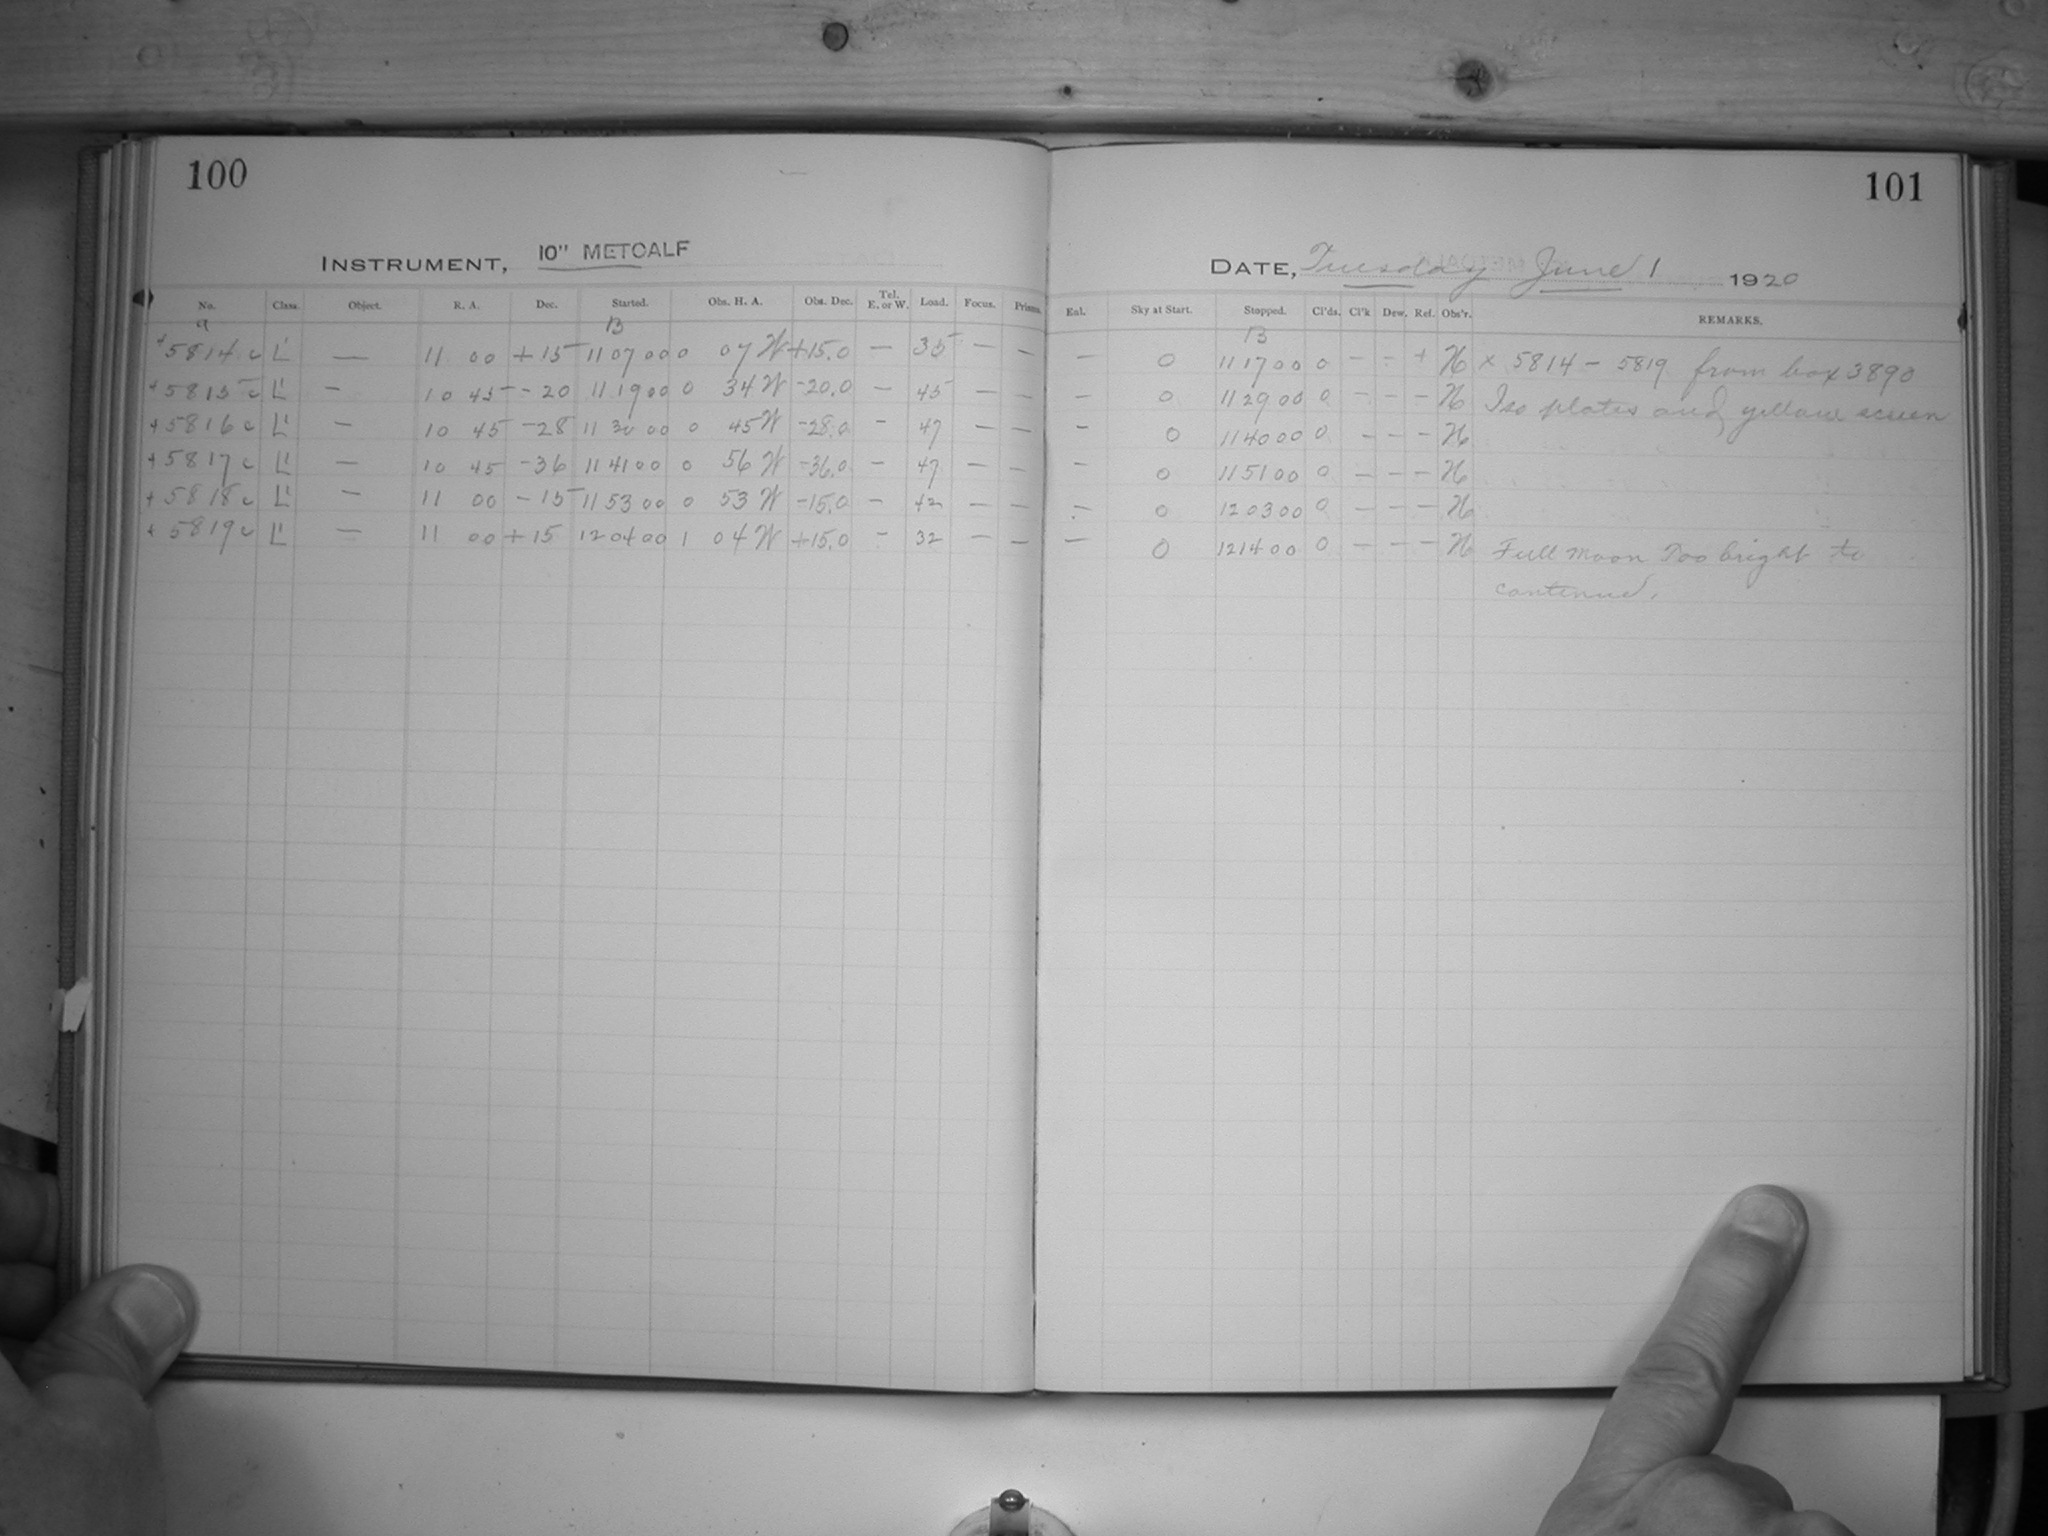 100
INSTRUMENT, 10" METCALF
No. Class. Object. R. A. Dec. Started. Obs. H. A. Obs. Dec. Tel. E. or W. Load. Focus. Prisms.
a B
+5814 c L' — 11 00 +15 11 07 00 0 07 W +15.0 — 35 — —
+5815 c L' — 10 45 -20 11 19 00 0 34 W -20.0 — 45 — —
+5816 c L' — 10 45 -28 11 30 00 0 45 W -28.0 — 47 — —
+5817 c L' — 10 45 -36 11 41 00 0 56 W -36.0 — 47 — —
+5818 c L' — 11 00 -15 11 53 00 0 53 W -15.0 — 42 — —
+5819 c L' — 11 00 +15 12 04 00 1 04 W +15.0 — 32 — —
101
DATE, Tuesday June 1 1920
Enl. Sky at Start. Stopped. Cl'ds. Cl'k Dew. Ref. Obs'r. REMARKS.
B
— 0 11 17 00 0 — — + H x 5814 - 5819 from box 3890
— 0 11 29 00 0 — — — H Iso plates and yellow screen
— 0 11 40 00 0 — — — H
— 0 11 51 00 0 — — — H
— 0 12 03 00 0 — — — H
— 0 12 14 00 0 — — — H Full Moon Too bright to
continue.